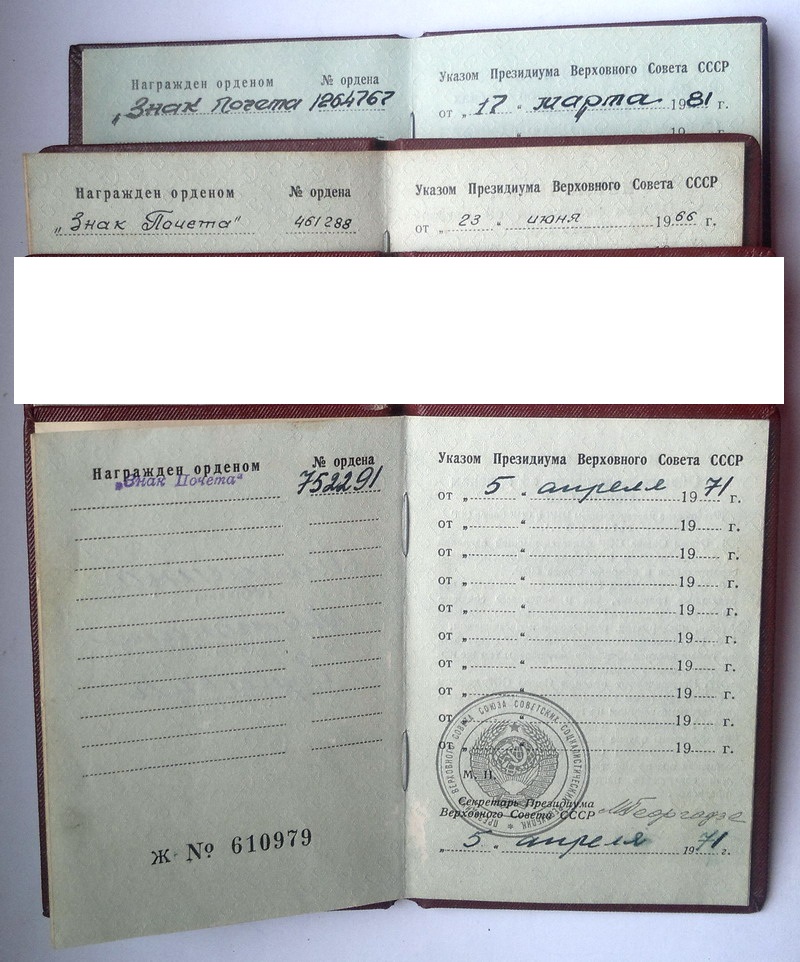 Награжден орденом № ордена
„Знак Почета 1264767
Указом Президиума Верховного Совета СССР
от „ 17 “ марта 1981 г.
Награжден орденом № ордена
„Знак Почета“ 461288
Указом Президиума Верховного Совета СССР
от „ 23 “ июня 1966 г.
Награжден орденом № ордена
„Знак Почета“ 752291
Ж № 610979
Указом Президиума Верховного Совета СССР
от „ 5 “ апреля 1971 г.
от „ “ 19 г.
от „ “ 19 г.
от „ “ 19 г.
от „ “ 19 г.
от „ “ 19 г.
от „ “ 19 г.
от „ “ 19 г.
от „ “ 19 г.
от „ “ 19 г.
М. П.
Секретарь Президиума
Верховного Совета СССР М Георгадзе
„ 5 “ апреля 1971 г.
ВЕРХОВНОГО СОВЕТА СОЮЗА СОВЕТСКИХ СОЦИАЛИСТИЧЕСКИХ